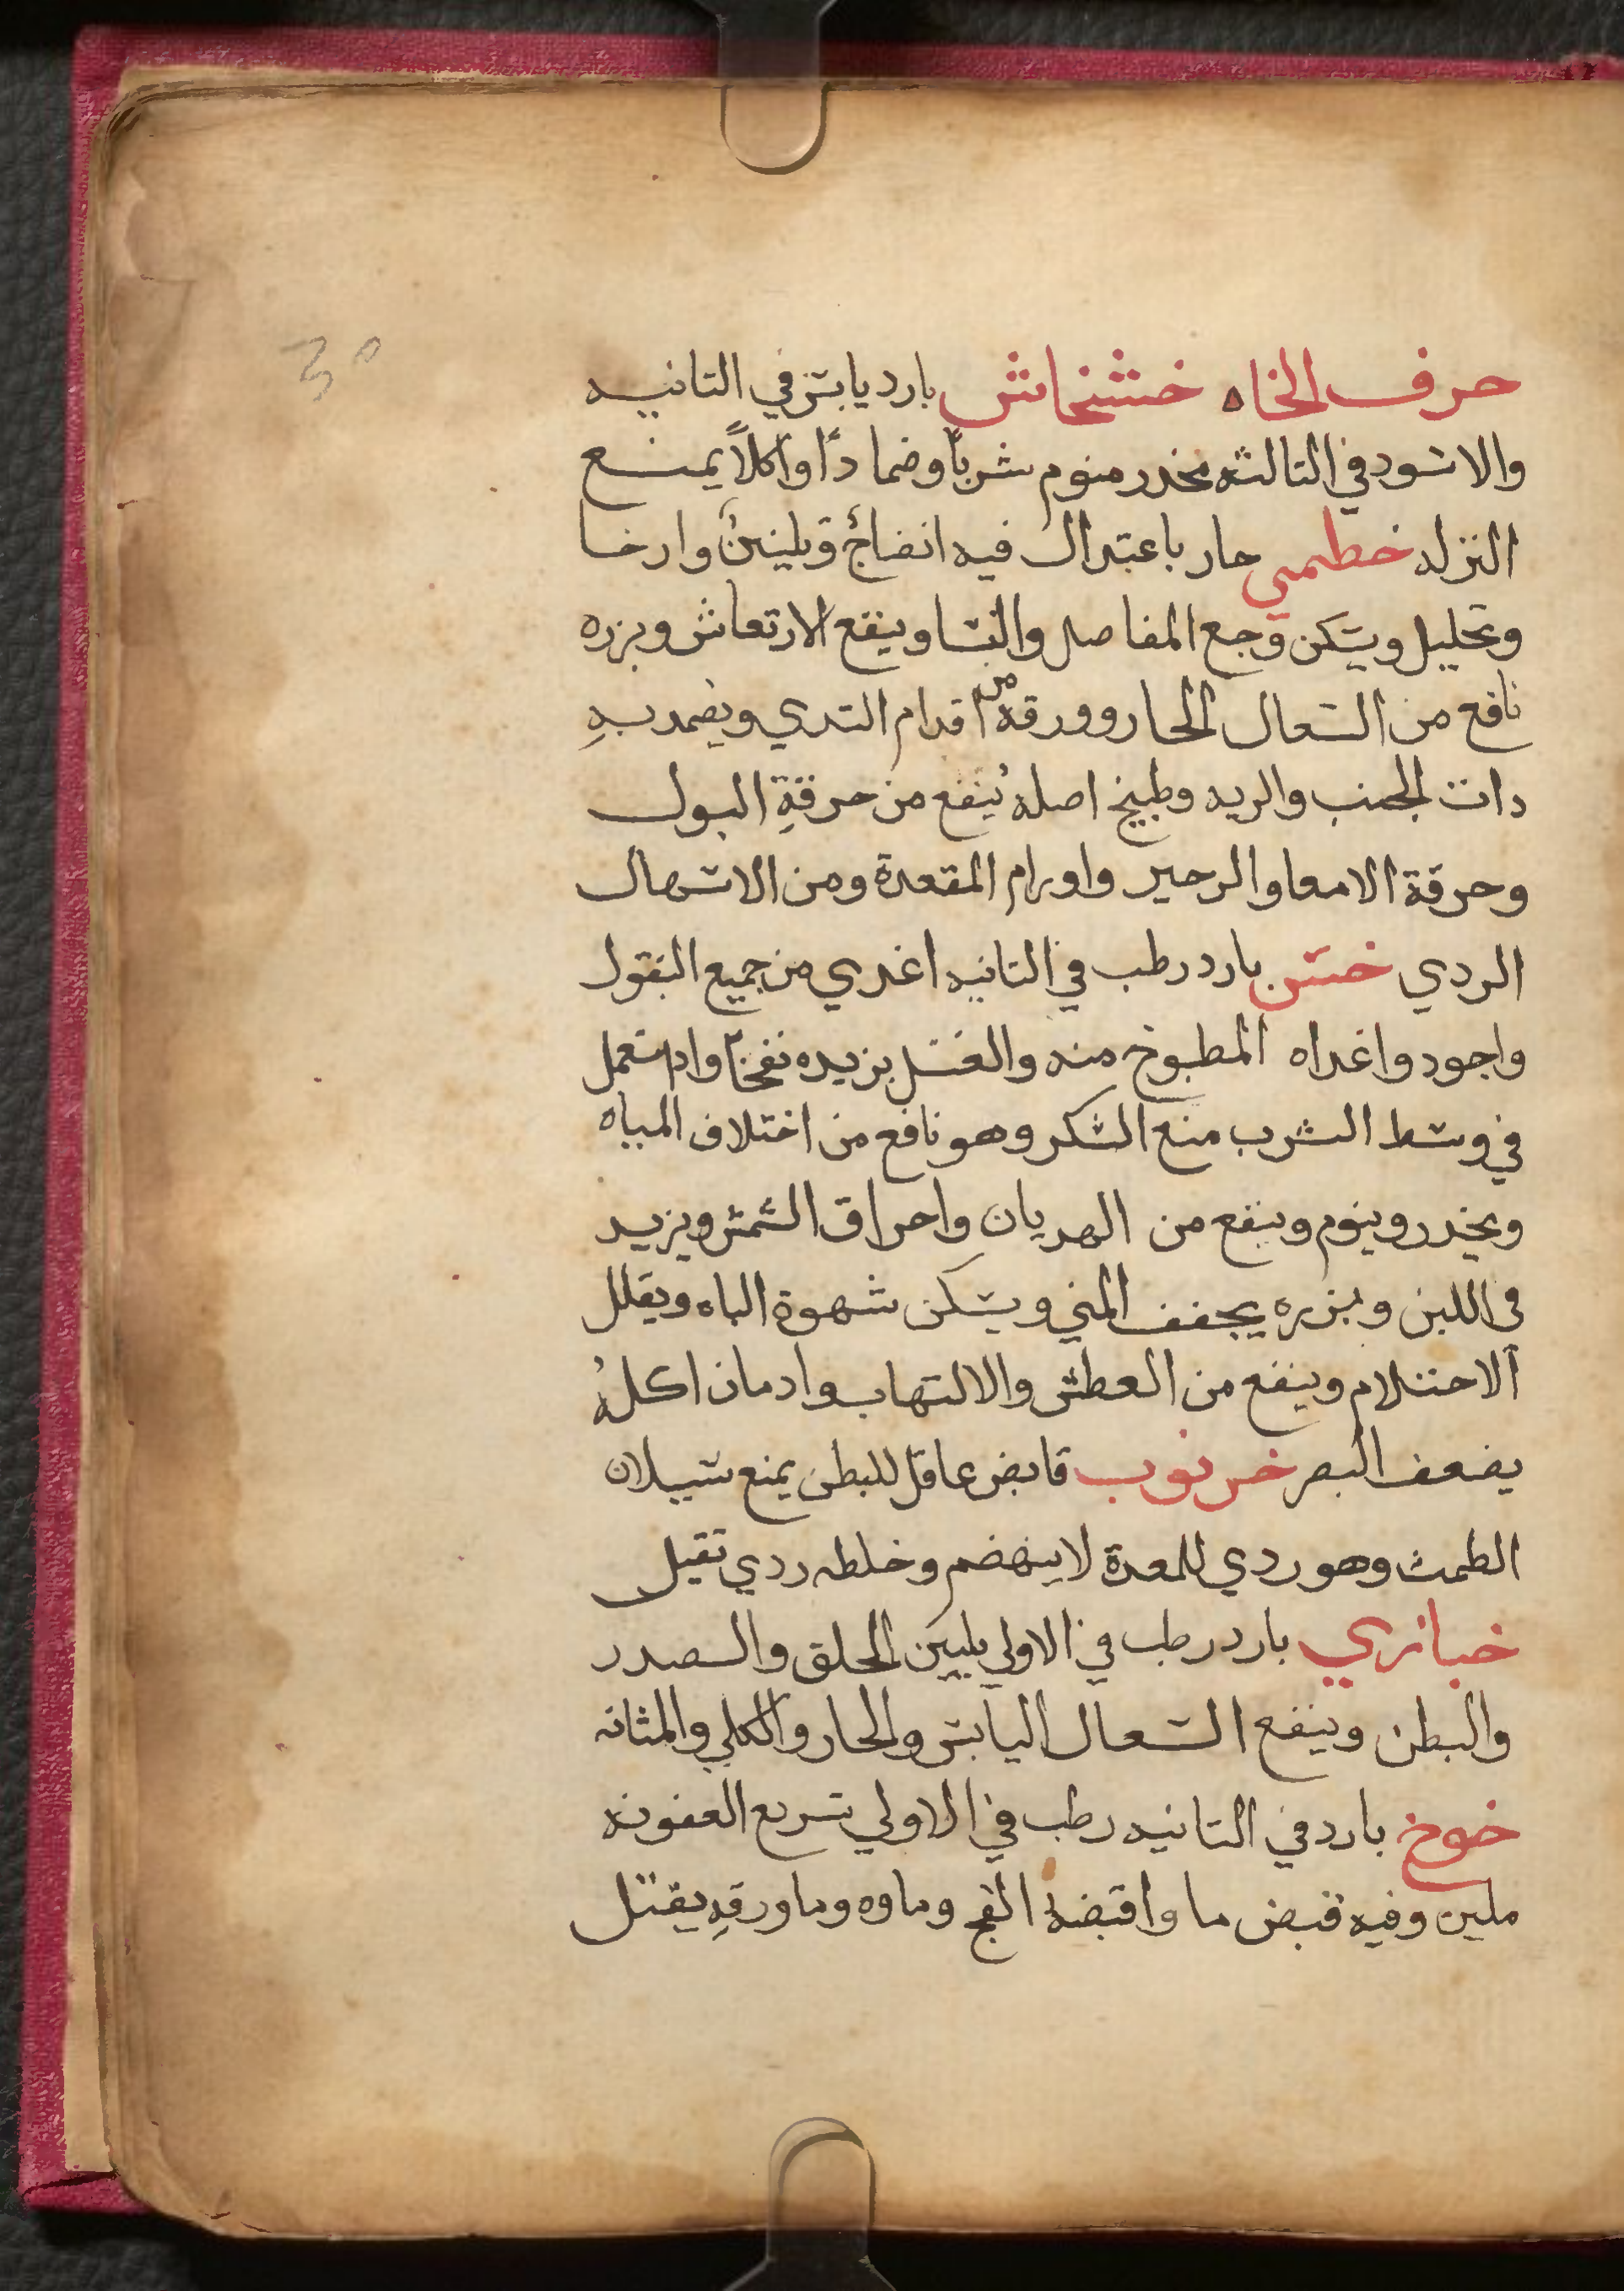 30
حرف الخاه خشخاش بارد يابس في التانيه
والاسود في التالثه مخدر منوم شرباً وضماداً واكلاً يمنع
النزله خطمي حار باعتدال فيه انضاجٌ وتليينٌ وارخا
وتحليل ويسكن وجع المفاصل والنسا وينفع الارتعاش وبزره
نافع من السعال الحار وورقه من اقدام التدي ويضمد بهِ
دات الجنب والريه وطبيخ اصلهُ ينفع من حرقةِ البول
وحرقة الامعا والزحير واورام المقعدة ومن الاسهال
الردي خس بارد رطب في التانيه اغدي من جميع البقول
واجود واغداه المطبوخ منه والغسل يزيده نفخاً وادا استعمل
في وسط الشرب منع السكر وهو نافع من اختلاف المياه
ويخدر وينوم وينفع من الهديان واحراق الشمس ويزيد
في اللبن وبزره يجفف المني ويسكن شهوة الباه ويقلل
الاحتلام وينفع من العطش والالتهاب وادمان اكلهُ
يضعف البصر خرنوب قابض عاقل للبطن يمنع سيلان
الطمث وهو ردي للمعدة لا ينهضم وخلطه ردي تقيل
خبازي بارد رطب في الاولي يليين الحلق والصدر
والبطن وينفع السعال اليابس والحار والكلي والمثانه
خوخ بارد في التانيه رطب في الاولي سريع العفونه
ملين وفيه قبض ما واقبضهُ الفج وماوه وما ورقهِ يقتل